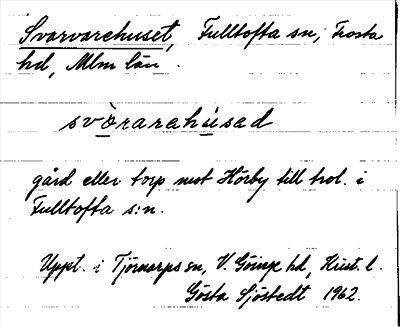 Svarvarehuset, Fulltofta sn, Frosta
hd, Mlm län.
svòrarahúsad
gård eller torp mot Hörby till trol. i
Fulltofta s:n.
Uppt. i Tjörnarps sn, V. Göinge hd, Krist. l.
Gösta Sjöstedt 1962.